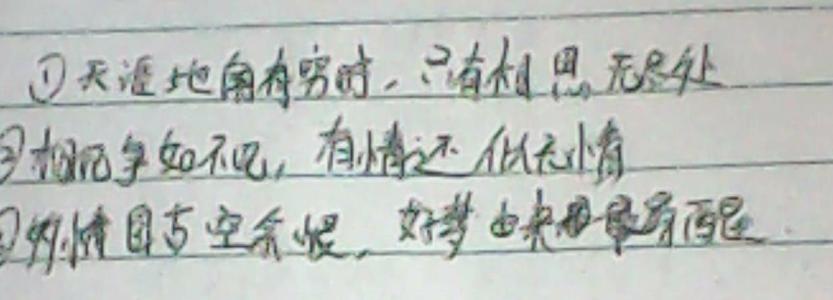 ①天涯地角有穷时,只有相思无尽处
②相见争如不见,有情还似无情
③多情自古空余恨,好梦由来最易醒